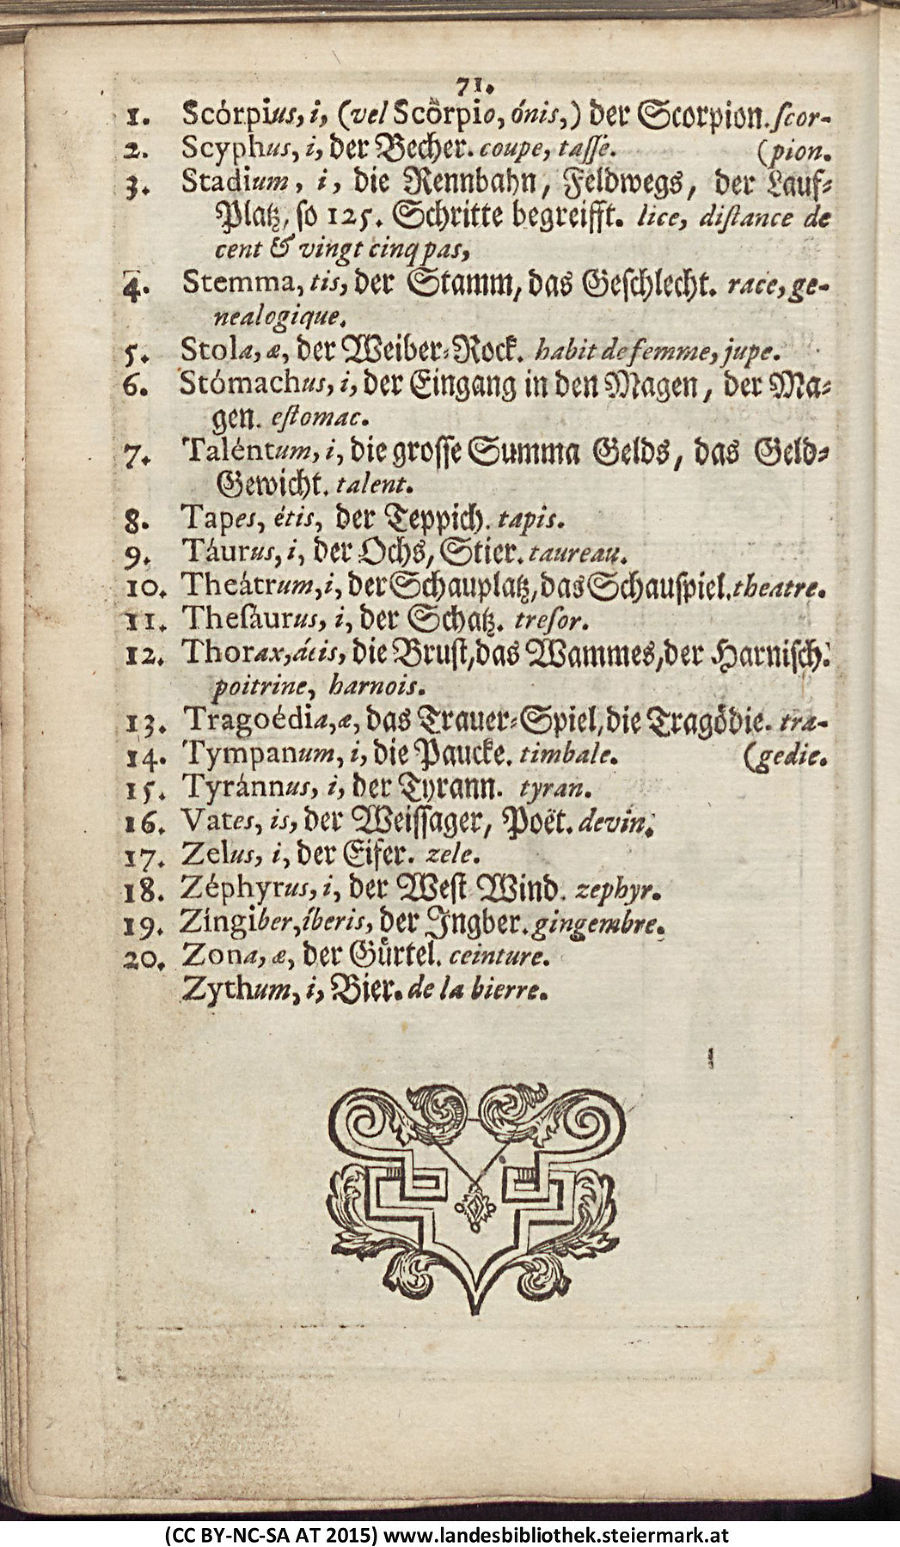 71.
1. Scórpius, i, (vel Scörpio, ónis,) der Scorpion. ſcor-
2. Scyphus, i, der Becher. coupe, taſſe. (pion.
3. Stadium, i, die Rennbahn, Feldwegs, der Lauf-
Platz, ſo 125. Schritte begreifft. lice, diſtance de
cent & vingt cinq pas,
4. Stemma, tis, der Stamm, das Geſchlecht. race, ge-
nealogique.
5. Stola, æ, der Weiber-Rock. habit de femme, jupe.
6. Stómachus, i, der Eingang in den Magen, der Ma-
gen. eſtomac.
7. Taléntum, i, die groſſe Summa Gelds, das Geld-
Gewicht. talent.
8. Tapes, étis, der Teppich. tapis.
9. Táurus, i, der Ochs, Stier. taureau.
10. Theátrum, i, der Schauplatz, das Schauſpiel. theatre.
11. Theſaurus, i, der Schatz. treſor.
12. Thorax, ácis, die Bruſt, das Wammes, der Harniſch.
poitrine, harnois.
13. Tragoédia, æ, das Trauer-Spiel, die Tragödie. tra-
14. Tympanum, i, die Paucke. timbale. (gedie.
15. Tyránnus, i, der Tyrann. tyran.
16. Vates, is, der Weiſſager, Poët. devin.
17. Zelus, i, der Eifer. zele.
18. Zéphyrus, i, der Weſt Wind. zephyr.
19. Zíngiber, íberis, der Ingber. gingembre.
20. Zona, æ, der Gürtel. ceinture.
Zythum, i, Bier. de la bierre.
(CC BY-NC-SA AT 2015) www.landesbibliothek.steiermark.at